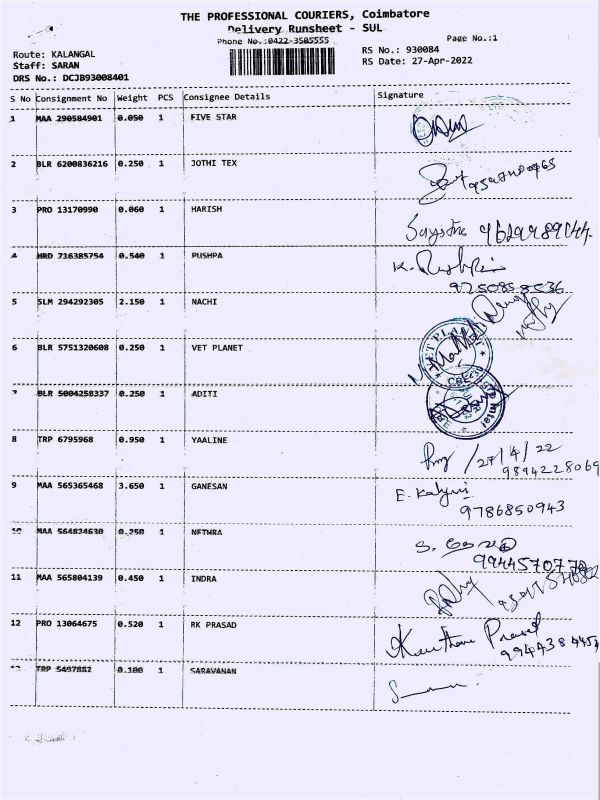 THE PROFESSIONAL COURIERS, Coimbatore
Delivery Runsheet - SUL
Phone No.:0422-3505555 Page No.:1
Route: KALANGAL RS No.: 930084
Staff: SARAN RS Date: 27-Apr-2022
DRS No.: DCJB93008401
S No Consignment No Weight PCS Consignee Details Signature
1 MAA 290584901 0.050 1 FIVE STAR
2 BLR 6200836216 0.250 1 JOTHI TEX
3 PRO 13170990 0.060 1 HARISH
9629989044
4 HRD 716385754 0.540 1 PUSHPA K. Pushpa
9750858536
5 SLM 294292305 2.150 1 NACHI
6 BLR 5751320608 0.250 1 VET PLANET
VET PLANET
CBE
7 BLR 5004258337 0.250 1 ADITI
8 TRP 6795968 0.950 1 YAALINE 27/4/22
9894228069
9 MAA 565365468 3.650 1 GANESAN E. Kalyani
9786850943
10 MAA 564824630 0.250 1 NETHRA S.
9944570770
11 MAA 565804139 0.450 1 INDRA
12 PRO 13064675 0.520 1 RK PRASAD Prasad
9944384454
13 TRP 5497882 0.100 1 SARAVANAN